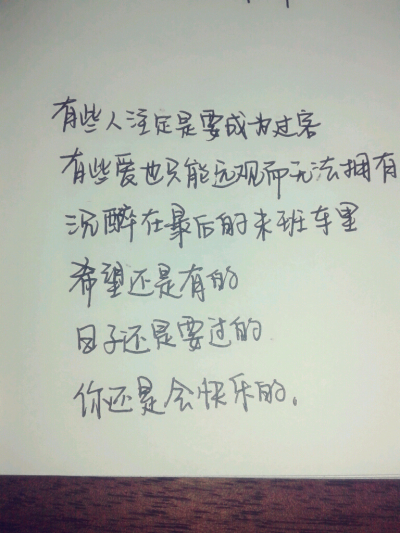 有些人注定是要成为过客
有些爱也只能远观而无法拥有
沉醉在最后的末班车里
希望还是有的
日子还是要过的
你还是会快乐的.